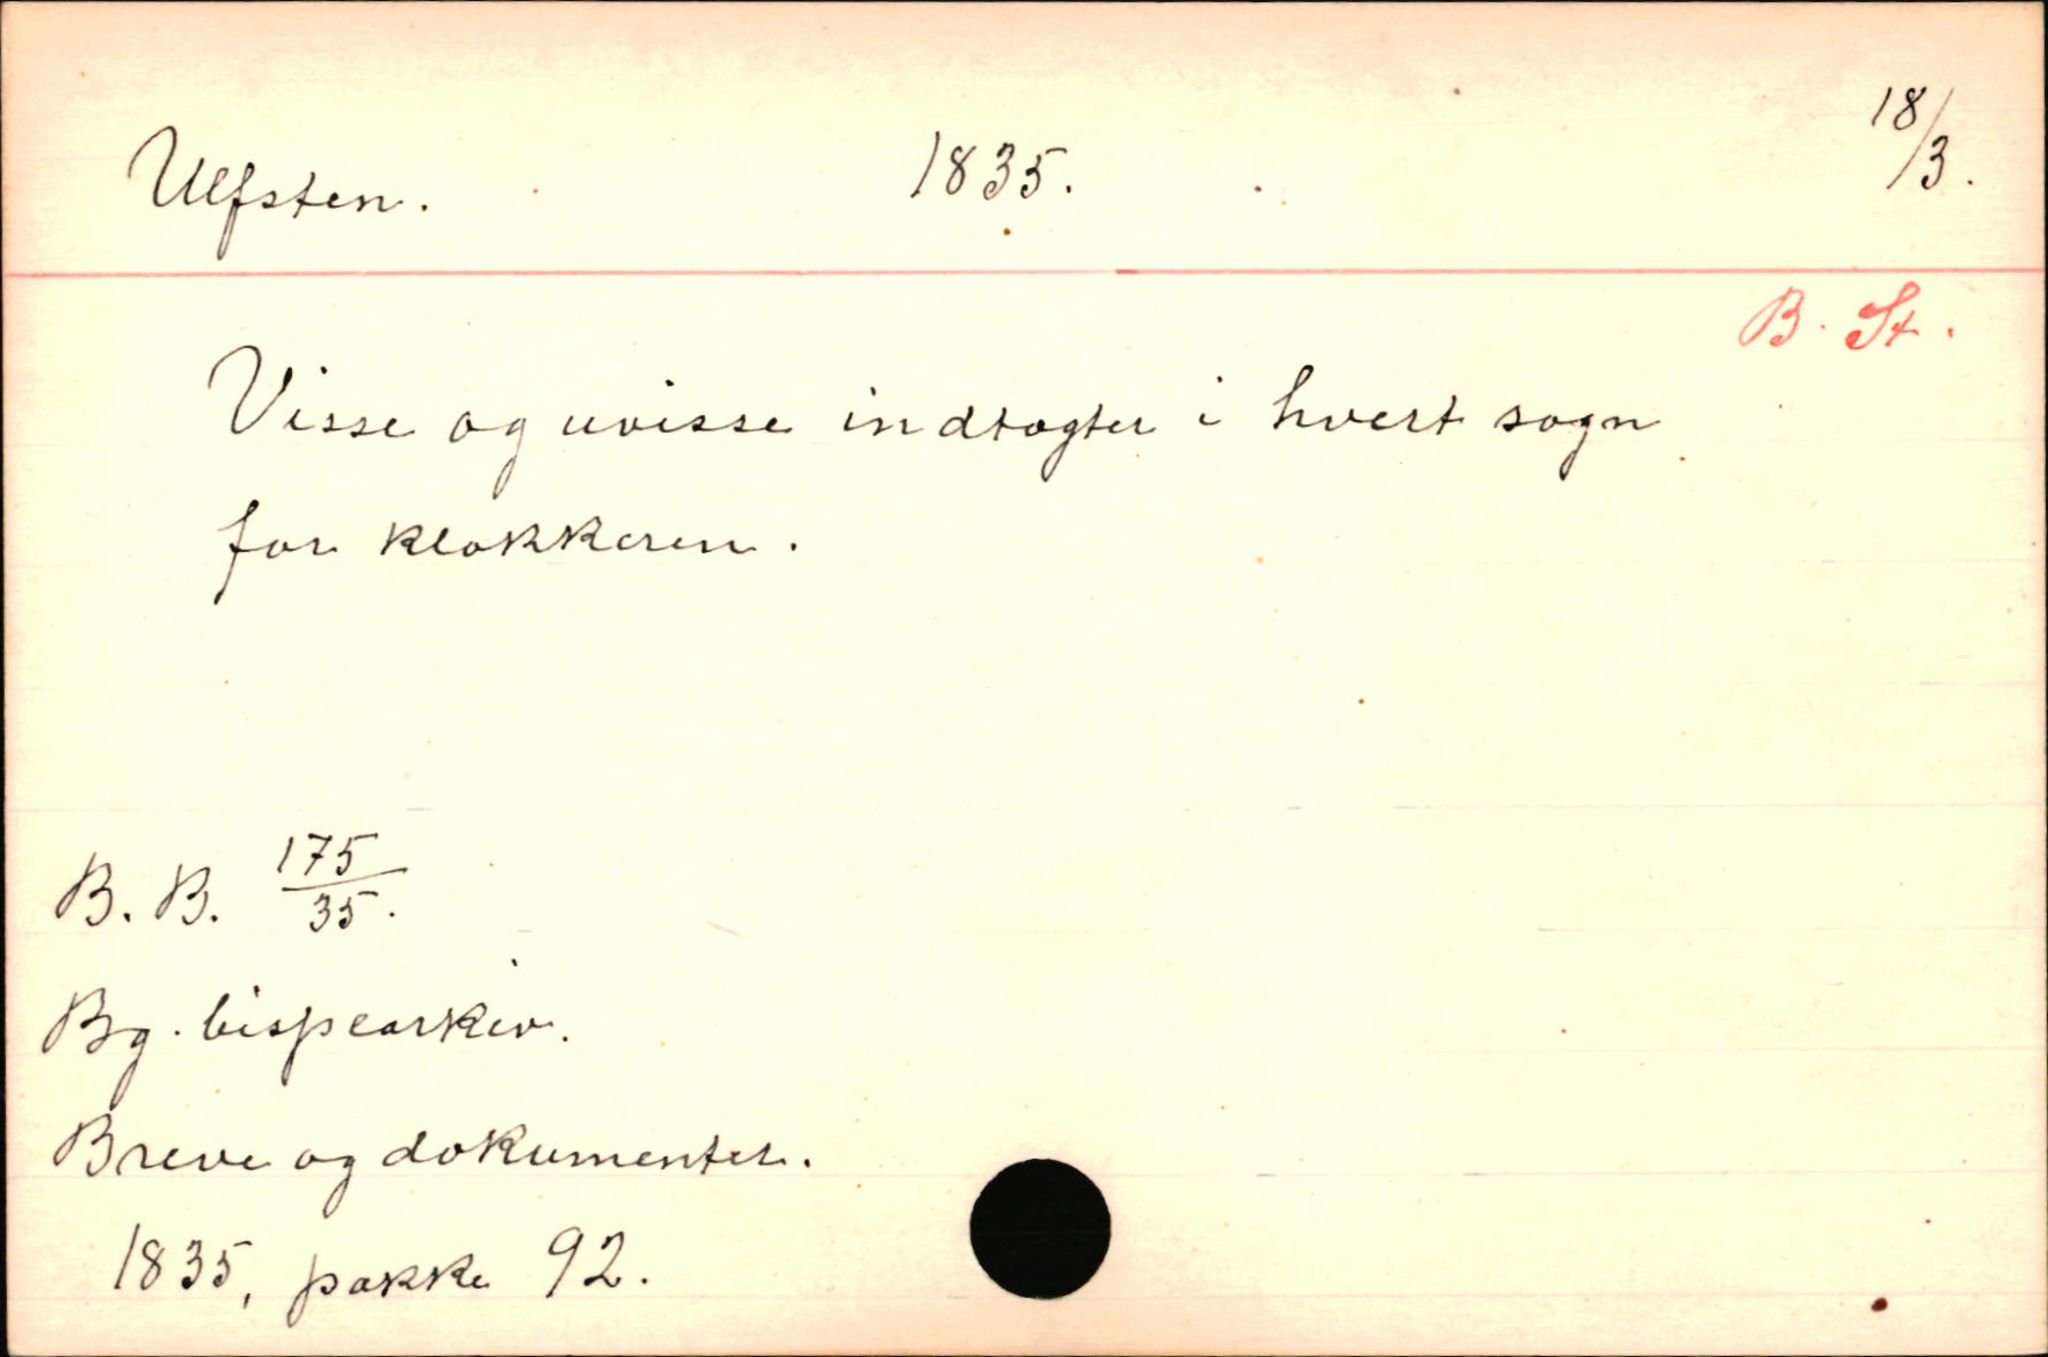 Ulfsten. 1835. 18/3.
B. St.
Visse og uvisse indtægter i hvert sogn
for klokkeren.
B. B. 175/35.
Bg. bispearkiv.
Breve og dokumenter.
1835, pakke 92.